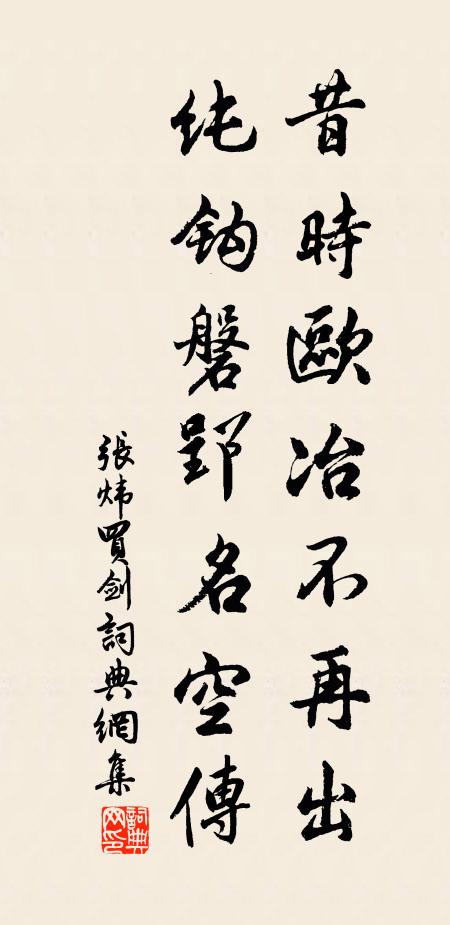 昔時歐冶不再出
纯鈎磐郢名空傳
張炜買劍詞典網集
詞典网印